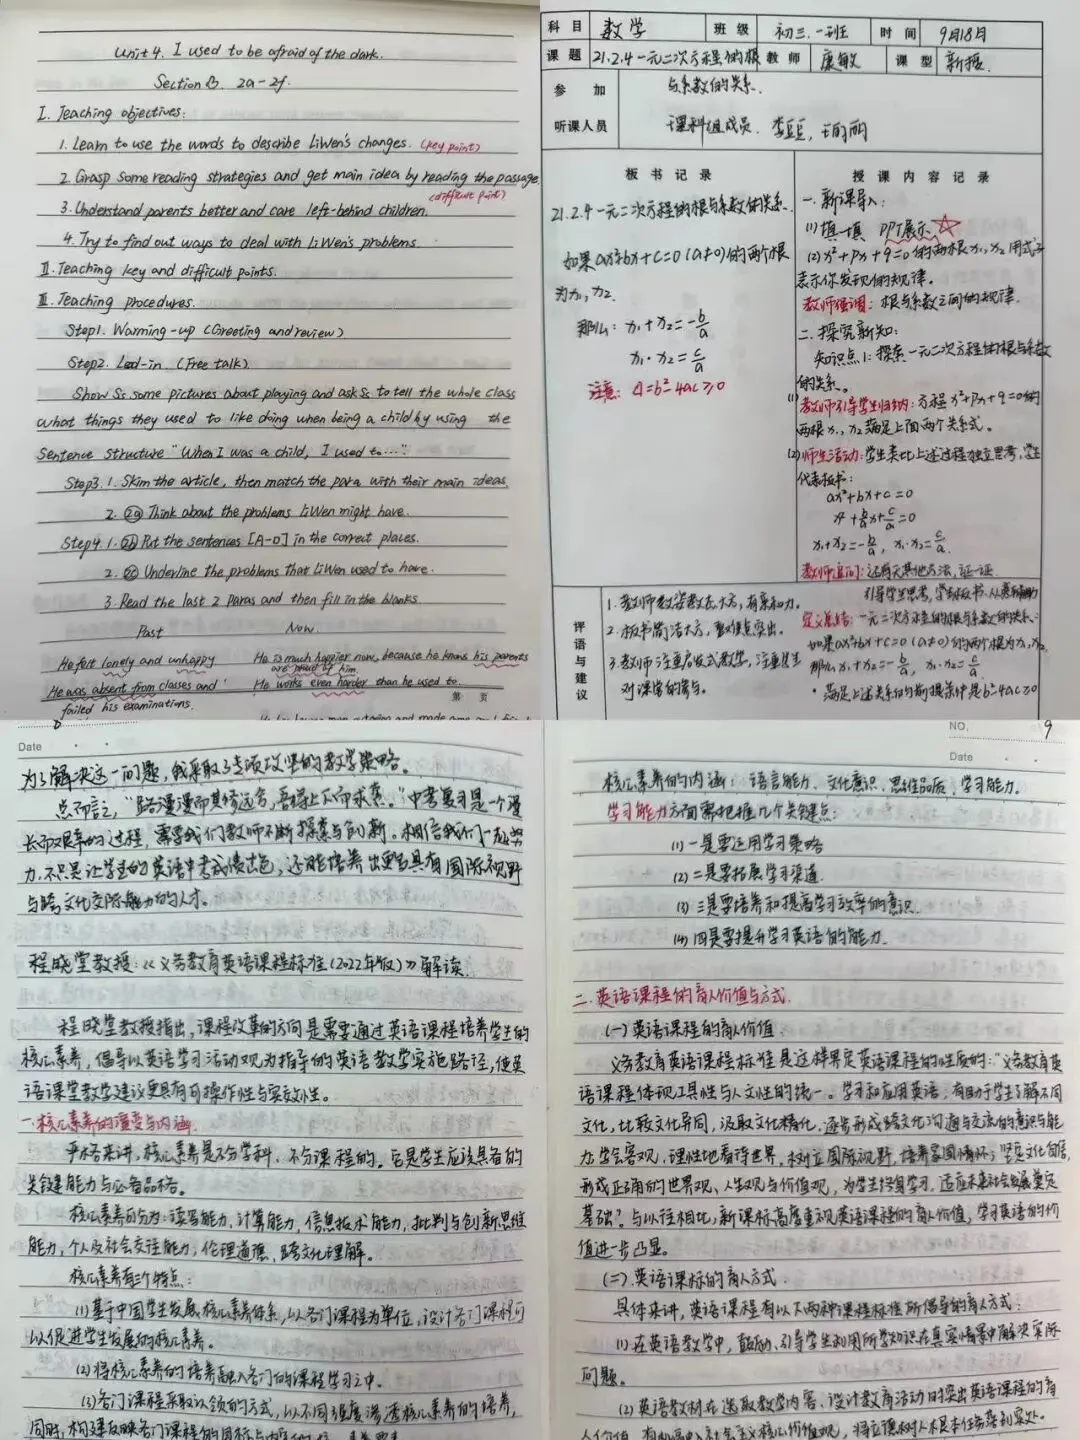 Unit 4. I used to be afraid of the dark.
Section B. 2a-2f.
I. Teaching objectives:
1. Learn to use the words to describe LiWen's changes. (key point)
2. Grasp some reading strategies and get main idea by reading the passage.
(difficult point)
3. Understand parents better and care left-behind children.
4. Try to find out ways to deal with LiWen's problems.
II. Teaching key and difficult points.
III. Teaching procedures.
Step1. Warming-up (Greeting and review)
Step2. Lead-in (Free talk)
Show Ss some pictures about playing and ask Ss to tell the whole class
what things they used to like doing when being a child by using the
sentence structure "When I was a child, I used to ...".
Step3. 1. Skim the article, then match the para with their main ideas.
2. 2a Think about the problems LiWen might have.
Step4. 1. 2b Put the sentences [A-D] in the correct places.
2. 2c Underline the problems that LiWen used to have.
3. Read the last 2 paras and then fill in the blanks.
Past Now
He felt lonely and unhappy He is much happier now, because he knows his parents
are proud of him.
He was absent from classes and He works even harder than he used to.
failed his examinations.
第 页
科目 数学 班级 初三.一班 时间 9月18月
课题 21.2.4一元二次方程的根 教师 康敏 课型 新授
与系数的关系.
参加
听课人员 理科组成员. 李豆豆,
板书记录
21.2.4一元二次方程的根与系数的关系.
如果ax²+bx+c=0(a≠0)的两个根
为x₁, x₂.
那么: x₁+x₂=-b/a
x₁·x₂=c/a
注意: Δ=b²-4ac≥0
授课内容记录
一.新课导入:
(1)填一填 PPT展示 ☆
(2)x²+px+q=0的两根x₁, x₂用式子
表示你发现的规律.
教师强调: 根与系数之间的规律.
二.探究新知:
知识点1: 探索一元二次方程的根与系数
的关系.
(1)教师引导学生归纳: 方程x²+px+q=0的
两根x₁, x₂满足上面两个关系式.
(2)师生活动: 学生类比上述过程独立思考, 学生
代表板书:
ax²+bx+c=0
x²+b/a x+c/a=0
x₁+x₂=-b/a, x₁·x₂=c/a.
教师追问: 还有无其他方法, 证一证.
引导学生思考, 学生板书.
定义总结: 一元二次方程的根与系数的关系:
如果ax²+bx+c=0(a≠0)的两个根为x₁, x₂
那么x₁+x₂=-b/a, x₁x₂=c/a
·满足上述关系的前提条件是b²-4ac≥0
评语与建议
1.教师教姿教态大方, 有亲和力.
2.板书简洁大方, 重难点突出.
3.教师注重启发式教学, 注重学生
对课堂的参与.
8
Date
为了解决这一问题, 我采取了专项攻坚的教学策略。
总而言之, "路漫漫而其修远兮, 吾将上下而求索。"中考复习是一个漫
长而艰辛的过程, 需要我们教师不断探索与创新。相信我们一起努
力, 不只是让学生的英语中考成绩出色, 还能培养出更多具有国际视野
与跨文化交际能力的人才。
程晓堂教授:《义务教育英语课程标准(2022年版)》解读.
程晓堂教授指出, 课程改革的方向是需要通过英语课程培养学生的
核心素养, 倡导以英语学习活动观为指导的英语教学实施路径, 使英
语课堂教学建议更具有可操作性与实效性。
一.核心素养的演变与内涵.
严格来讲, 核心素养是不分学科、不分课程的。它是学生应该具备的
关键能力与必备品格。
核心素养可分为: 读写能力, 计算能力, 信息技术能力, 批判与创新思维
能力, 个人及社会交往能力, 伦理道德, 跨文化理解。
核心素养有三个特点:
(1)基于中国学生发展核心素养体系, 以各门课程为单位, 设计各门课程可
以促进学生发展的核心素养。
(2)将核心素养的培养融入各门的课程学习之中.
(3)各门课程采取认领的方式, 以不同强度渗透核心素养的培养,
NO. 9
Date
核心素养的内涵: 语言能力、文化意识、思维品质、学习能力。
学习能力方面需把握几个关键点:
(1)一是要运用学习策略
(2)二是要拓展学习渠道.
(3)三是要培养和提高学习效率的意识.
(4)四是要提升学习英语的能力.
二.英语课程的育人价值与方式.
(一)英语课程的育人价值.
义务教育英语课程标准是这样界定英语课程的性质的: "义务教育英
语课程体现工具性与人文性的统一。学习和应用英语, 有助于学生了解不同
文化, 比较文化异同, 汲取文化精化, 逐步形成跨文化沟通与交流的意识与能
力, 学会客观、理性地看待世界, 树立国际视野, 培养家国情怀, 坚定文化自信,
形成正确的世界观, 人生观与价值观, 为学生终身学习、适应未来社会发展奠定
基础"。与以往相比, 新课标高度重视英语课程的育人价值, 学习英语的价
值进一步凸显。
(二).英语课标的育人方式.
具体来讲, 英语课程有以下两种课程标准所倡导的育人方式:
(1)在英语教学中, 鼓励、引导学生利用所学知识在真实情景中解决实际
问题。
(2)英语教材在选取教学内容、设计教育活动时突出英语课程的育